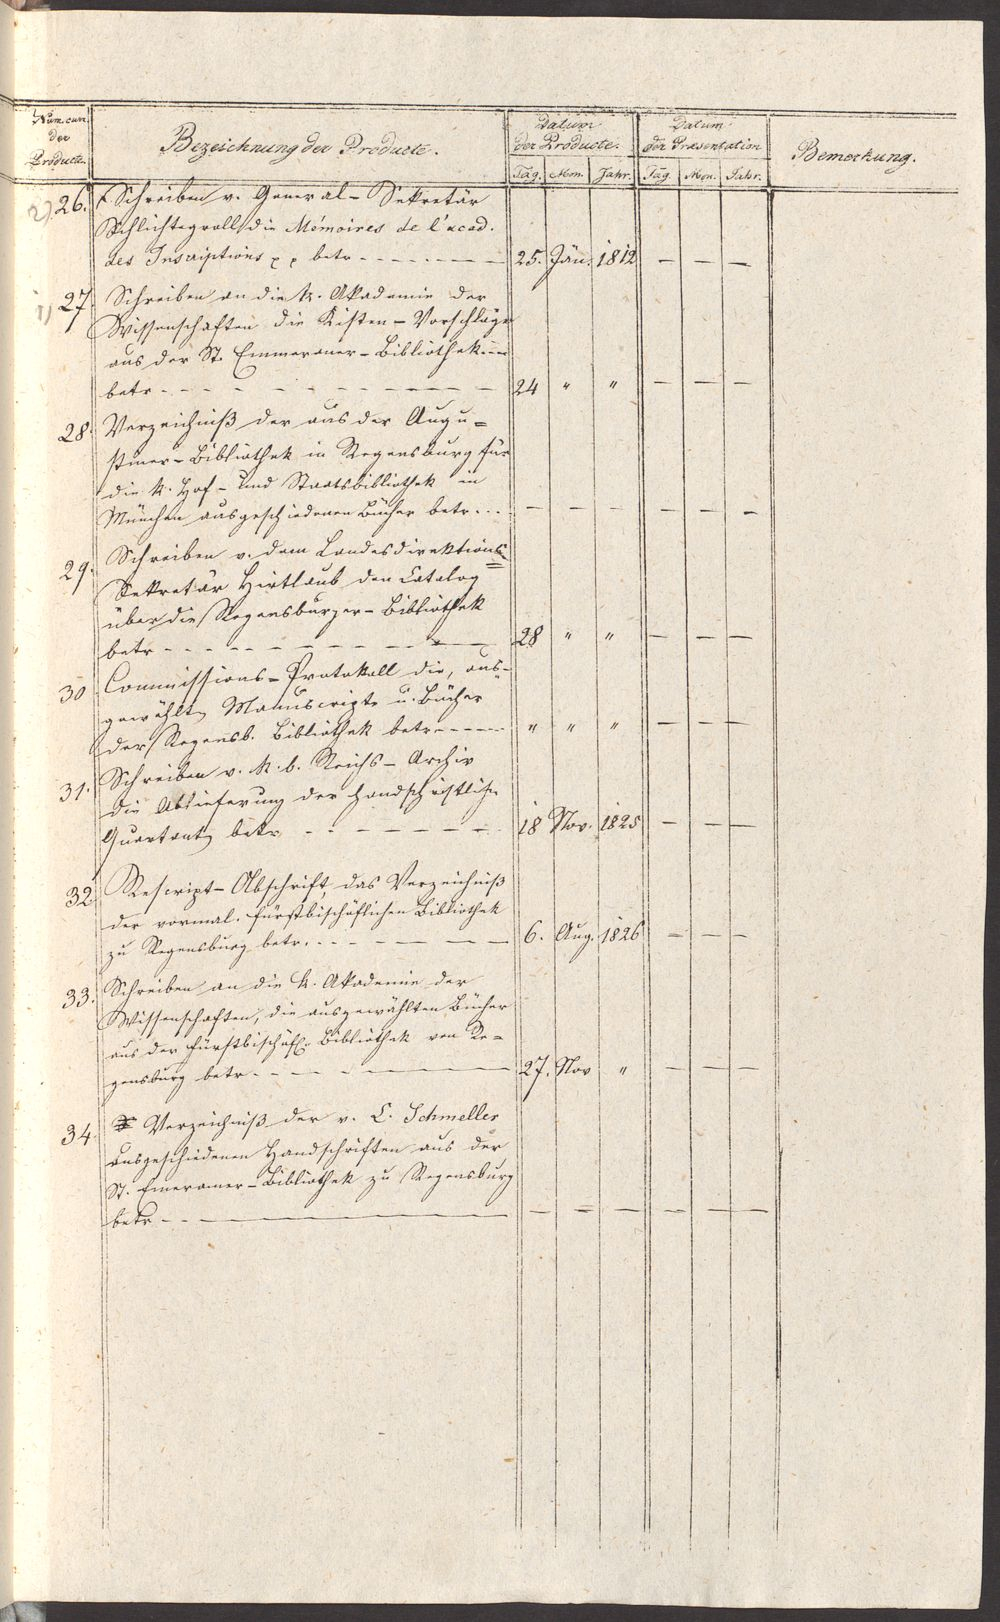 Num. curr.
der
Producte.
Bezeichnung der Producte.
Datum
der Producte.
Datum
der Præsentation
Bemerkung.
Tag. Mon. Jahr. Tag. Mon. Jahr.
2) 26. Schreiben v. General-Sekretär
Schlichtegroll die Mémoires de l'acad.
des Inscriptions betr. 25. Jän. 1812 — — —
1) 27. Schreiben an die k. Akademie der
Wissenschaften die Kisten-Vorschläge
aus der St. Emmeramer-Bibliothek
betr. 24 " " — — —
28. Verzeichniß der aus der Augu=
stiner-Bibliothek in Regensburg für
die k. Hof- und Staatsbibliothek in
München ausgeschiedenen Bücher betr. — — — — — —
29. Schreiben v. dem Landesdirektions
Sekretär Hirtlaub den Catalog
über die Regensburger-Bibliothek
betr. 28 " " — — —
30 Commissions-Protokoll die, aus-
gewählte Manuscripte u. Bücher
der Regensb. Bibliothek betr. " " " — — —
31. Schreiben v. k. b. Reichs-Archiv
die Ablieferung der handschriftlichen
Quartant betr. 18 Nov. 1825 — — —
32 Rescript-Abschrift, das Verzeichniß
der vormal. fürstbischöflichen Bibliothek
zu Regensburg betr. 6. Aug. 1826 — — —
33. Schreiben an die k. Akademie der
Wissenschaften, die ausgewählten Bücher
aus der fürstbischöfl. Bibliothek von Re=
gensburg betr. 27. Nov " — — —
34. Verzeichniß der v. C. Schmeller
ausgeschiedenen Handschriften aus der
St. Emeramer-Bibliothek zu Regensburg
betr. — — — — — —